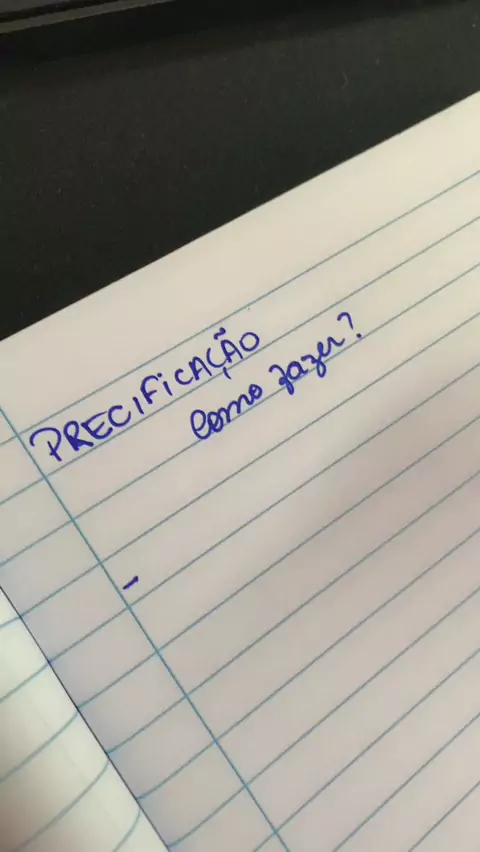 PRECIFICAÇÃO
Como fazer?
-